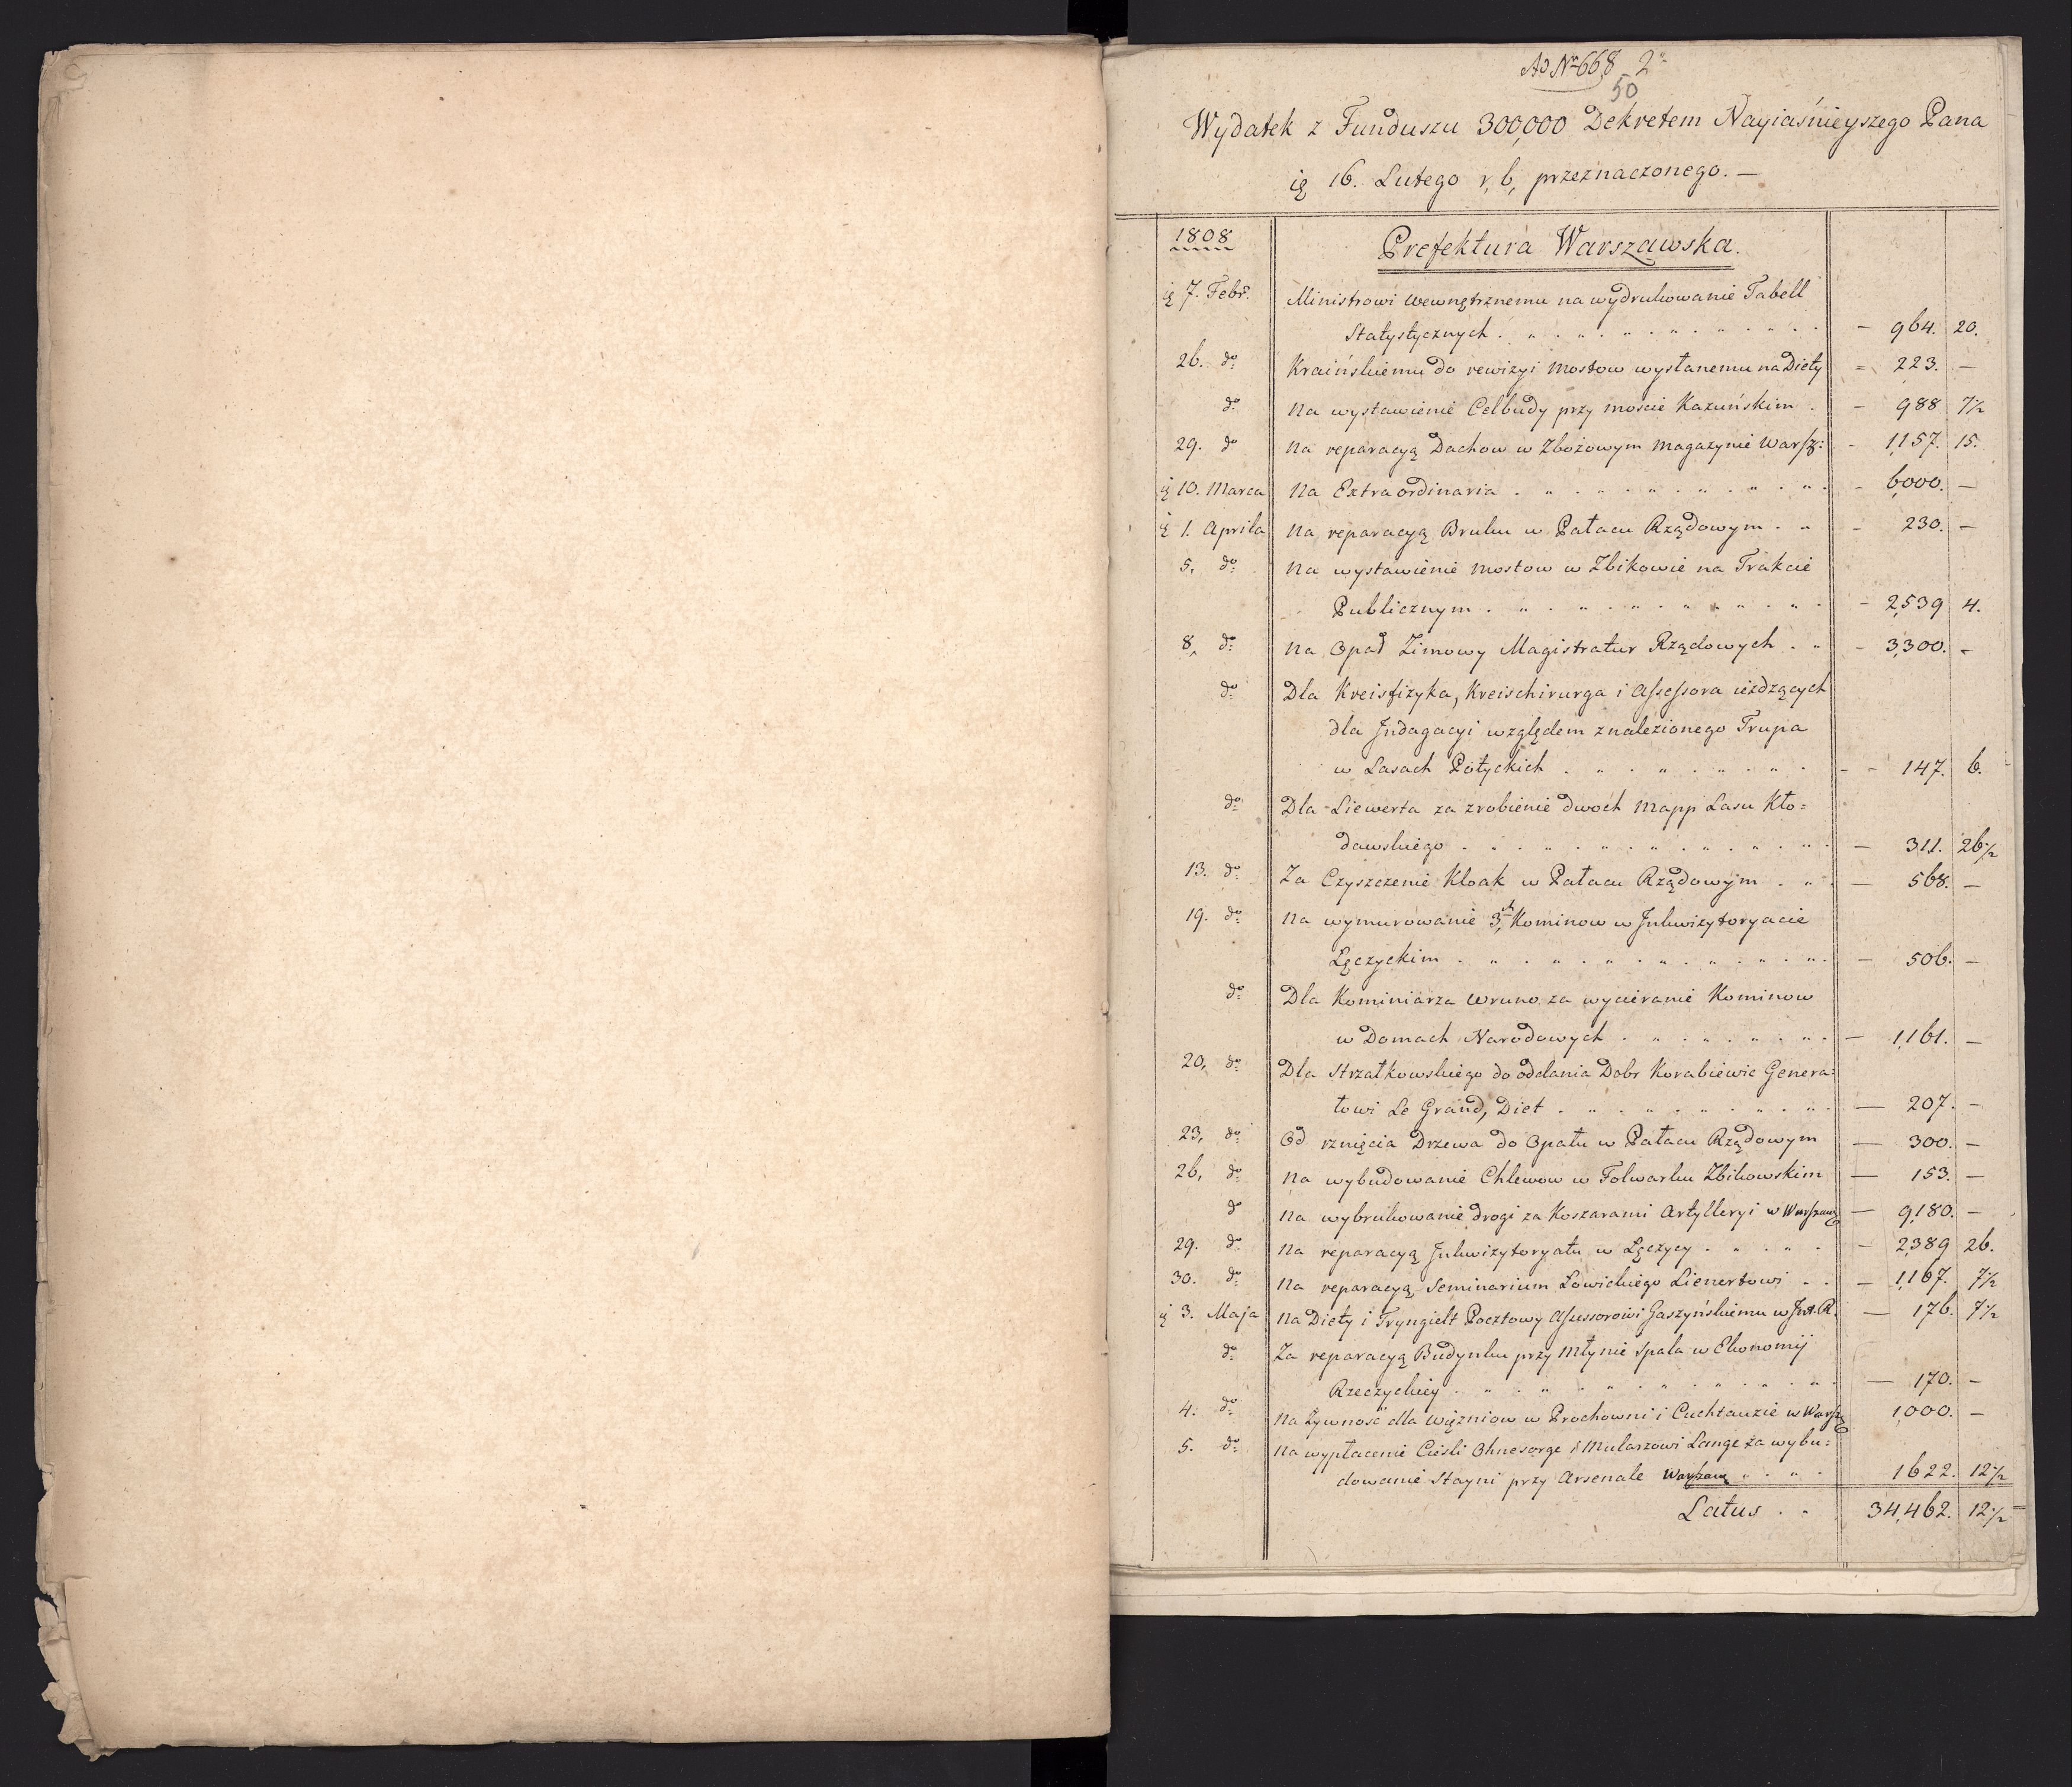 Ad No 668 2
50
Wydatek z Funduszu 300,000 Dekretem Nayiaśnieyszego Pana
16. Lutego r, b, przeznaczonego. —
1808 Prefektura Warszawska.
7. Febr. Ministrowi Wewnętrznemu na wydrukowanie Tabell
Statystycznych . . . — 964. 20.
26. do Kraińskiemu do rewizyi Mostow wysłanemu na Diety — 223. —
do Na wystawienie Celbudy przy moscie Kazuńskim . — 988 7½
29. do Na reparacyą Dachow w Zbożowym Magazynie Warsz: — 1,157. 15.
10. Marca Na Extraordinaria . . . — 6,000. —
1. Aprila Na reparacyą Bruku w Pałacu Rządowym . . — 230. —
5, do Na wystawienie Mostow w Zbikowie na Trakcie
Publicznym . . . — 2,539 4.
8, do Na Opał Zimowy Magistratur Rządowych . . — 3,300. —
do Dla Kreisfizyka, Kreischirurga i Assessora ieżdzących
dla Jndagacyi względem znalezionego Trupa
w Lasach Potyckich . . . — 147. 6.
do Dla Liewerta za zrobienie dwoch Mapp Lasu Kło=
dawskiego . . . — 311. 26½
13. do Za Czyszczenie Kloak w Pałacu Rządowym . . — 568. —
19. do Na wymurowanie 3ch Kominow w Jnkwizytoryacie
Łęczyckim . . . — 506. —
do Dla Kominiarza Wruno za wycieranie Kominow
w Domach Narodowych . . . — 1,161. —
20, do Dla Strzałkowskiego do oddania Dobr Korabiewic Genera=
łowi Le Grand, Diet . . . — 207. —
23, do Od rznięcia Drzewa do Opału w Pałacu Rządowym — 300. —
26, do Na wybudowanie Chlewow w Folwarku Zbikowskim — 153. —
do Na wybrukowanie drogi za Koszarami Artylleryi w Warszawie — 9,180. —
29. do Na reparacyą Jnkwizytoryatu w Łęczycy . . . — 2389 26.
30. do Na reparacyą Seminarium Łowickiego Lienertowi . . — 1,167. 7½
3. Maja Na Diety i Tryngielt Pocztowy Assessorowi Gaszyńskiemu w Jnt. R. — 176. 7½
do Za reparacyą Budynku przy Młynie Spala w Ekonomij
Rzeczyckiey . . . — 170. —
4. do Na Żywność dla Więzniow w Prochowni i Cuchtauzie w Warsz. 1,000. —
5. do Na wypłacenie Cieśli Ohnesorge i Mularzowi Lange za wybu=
dowanie Stayni przy Arsenale Warszaw. . . . 1622. 12½
Latus . . 34,462. 12½